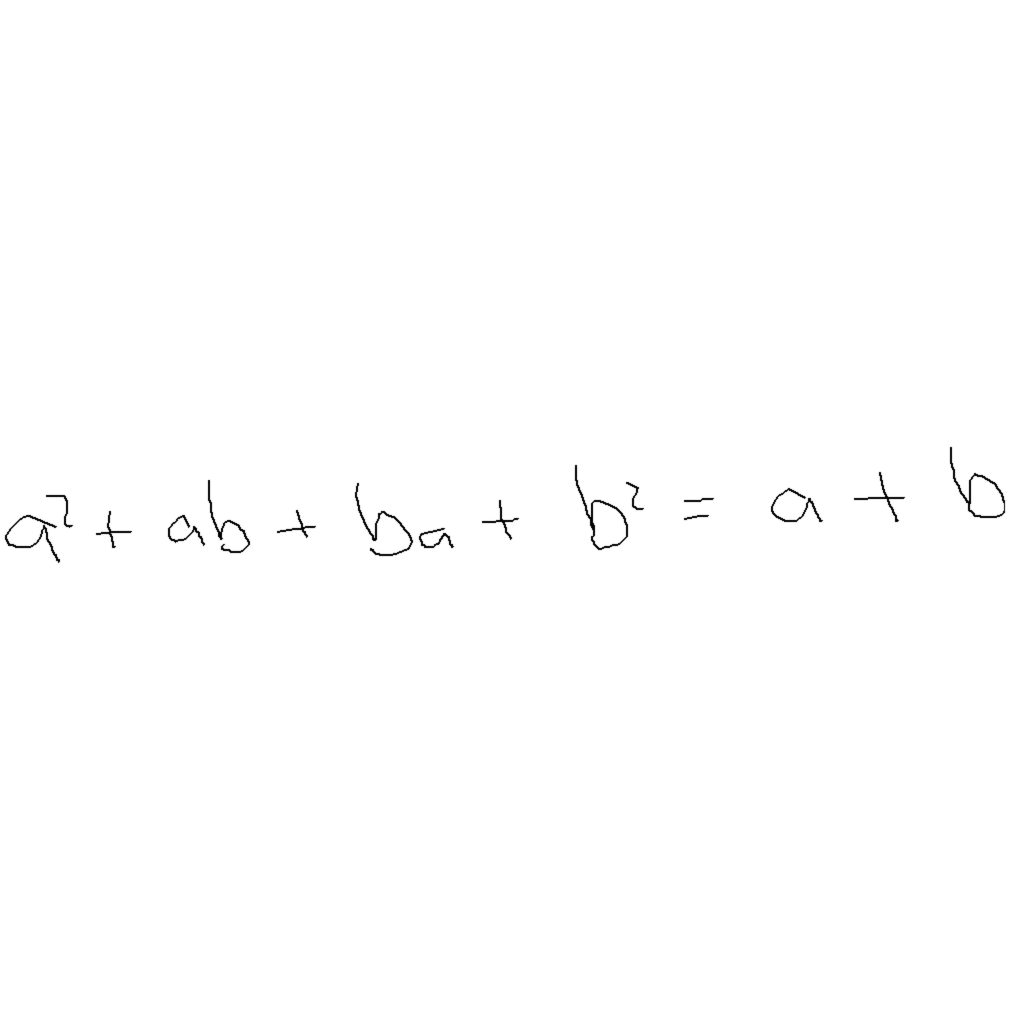 a² + ab + ba + b² = a + b